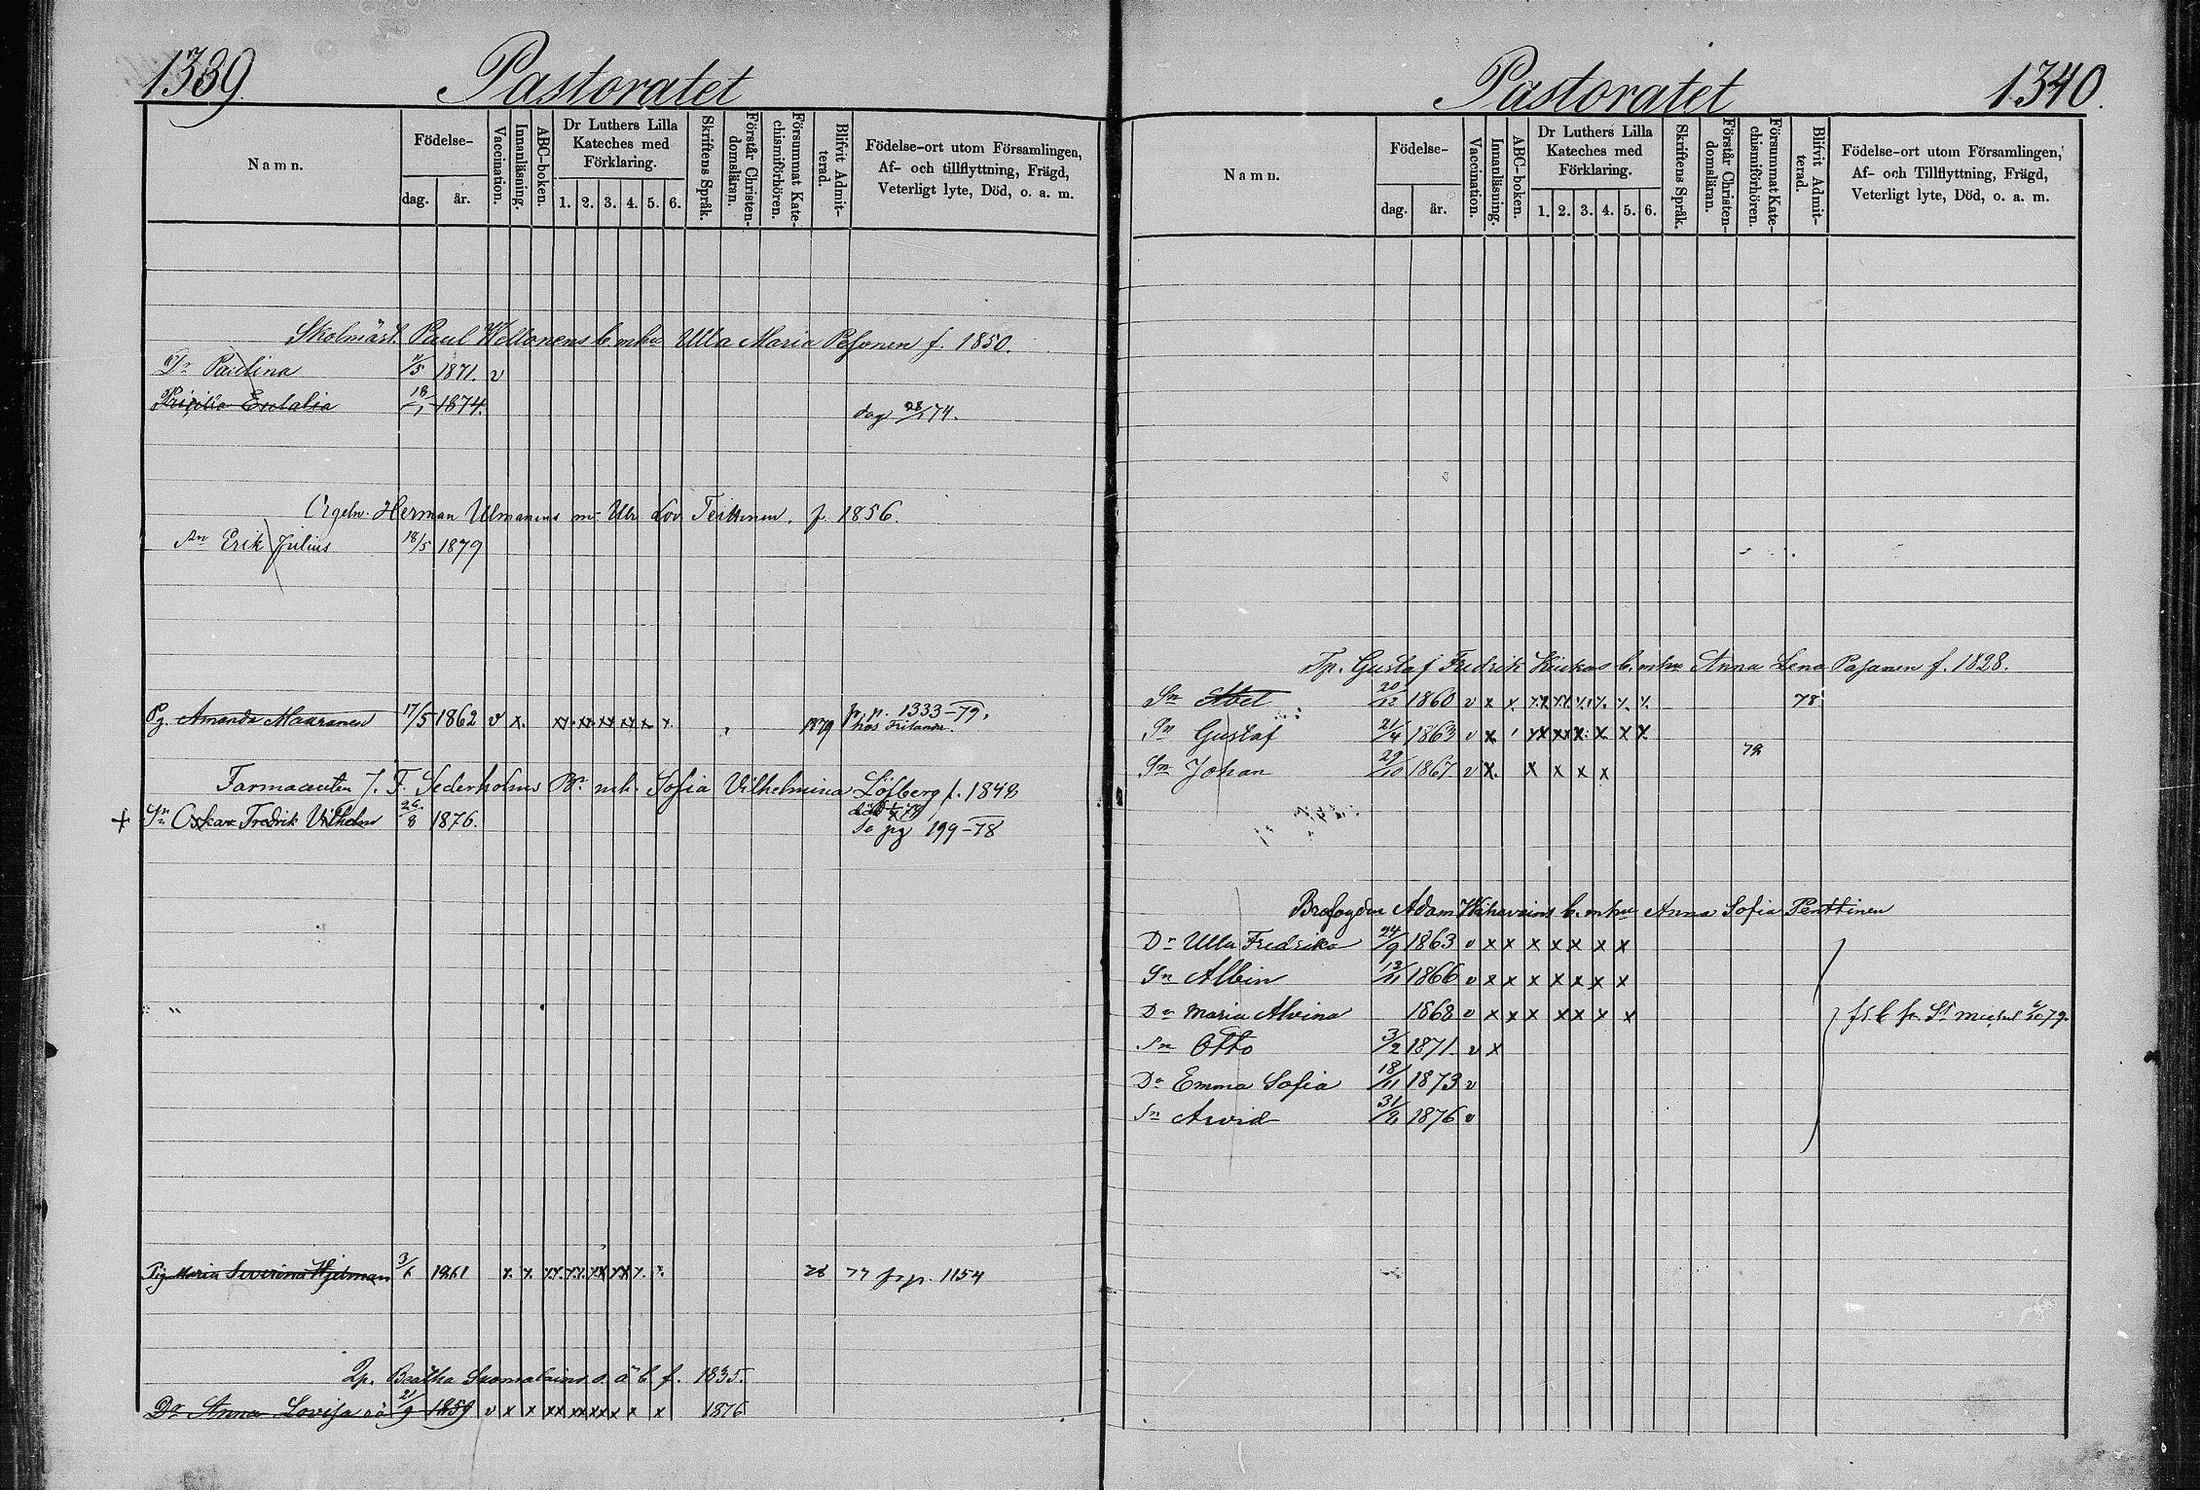 1339.
Pastoratet
Namn.
Födelse-
dag.
år.
Vaccination.
Innanläsning.
ABC-boken.
Dr Luthers Lilla
Kateches med
Förklaring.
1. 2. 3. 4. 5. 6.
Skriftens Språk.
Förstår Christen-
domsläran.
Försummat Kate-
chismiförhören.
Blifvit Admit-
terad.
Födelse-ort utom Församlingen,
Af- och tillflyttning, Frägd,
Veterligt lyte, Död, o. a. m.
Skolmäst. Paul b. m hu Ulla Maria Pesonen f. 1850.
Dr Paulina 1871. v
Eulalia 18/1 1874. 28/ 74.
Herman Ulmanens m. Lov. Teittinen. f. 1856.
Sn Erik Julius 18/5 1879
Pg. Amanda Maaranen 17/5 1862 v x. xx. xx. xx xx x. x. 1879 fr. p. 1333-79.
hos
Farmaceuten J. F. Sederholms m h. Sofia Vilhelmina Löfberg f. 1848
+ Sn Oskar Fredrik Vilhelm 26/8 1876.
Se pg 199-78
Pig Maria Severina Hjelman 3/6 1861 x. x. xx. xx. xx xx x. x. 78 77 fr p. 1154
Beatha o. ä b f. 1835.
Dr Anna Lovisa o ä 21/9 1859 v x x xx xx xx x x x 1876
Pastoratet
1340.
Namn.
Födelse-
dag.
år.
Vaccination.
Innanläsning.
ABC-boken.
Dr Luthers Lilla
Kateches med
Förklaring.
1. 2. 3. 4. 5. 6.
Skriftens Språk.
Förstår Christen-
domsläran.
Försummat Kate-
chismiförhören.
Blifvit Admit-
terad.
Födelse-ort utom Församlingen,
Af- och Tillflyttning, Frägd,
Veterligt lyte, Död, o. a. m.
Gustaf Fredrik b. m hu Anna Lena Pasanen f. 1828.
Sn Abel 20/12 1860 v x x. xx xx xx. x. x. 78
Sn Gustaf 21/4 1863 v x xx xx x. x. x x.
79
Sn Johan 29/10 1867 v x. x x x x
Adam b. m hu Anna Sofia Penttinen
Dr Ulla Fredrika 24/9 1863 v x x x x x x x
Sn Albin 1866 v x x x x x x x
Dr Maria Alvina 1868 v x x x x x x x
fr. St Michel 79.
Sn Otto 3/2 1871. v x
Dr Emma Sofia 18/11 1873 v
Sn Arvid 1876 v